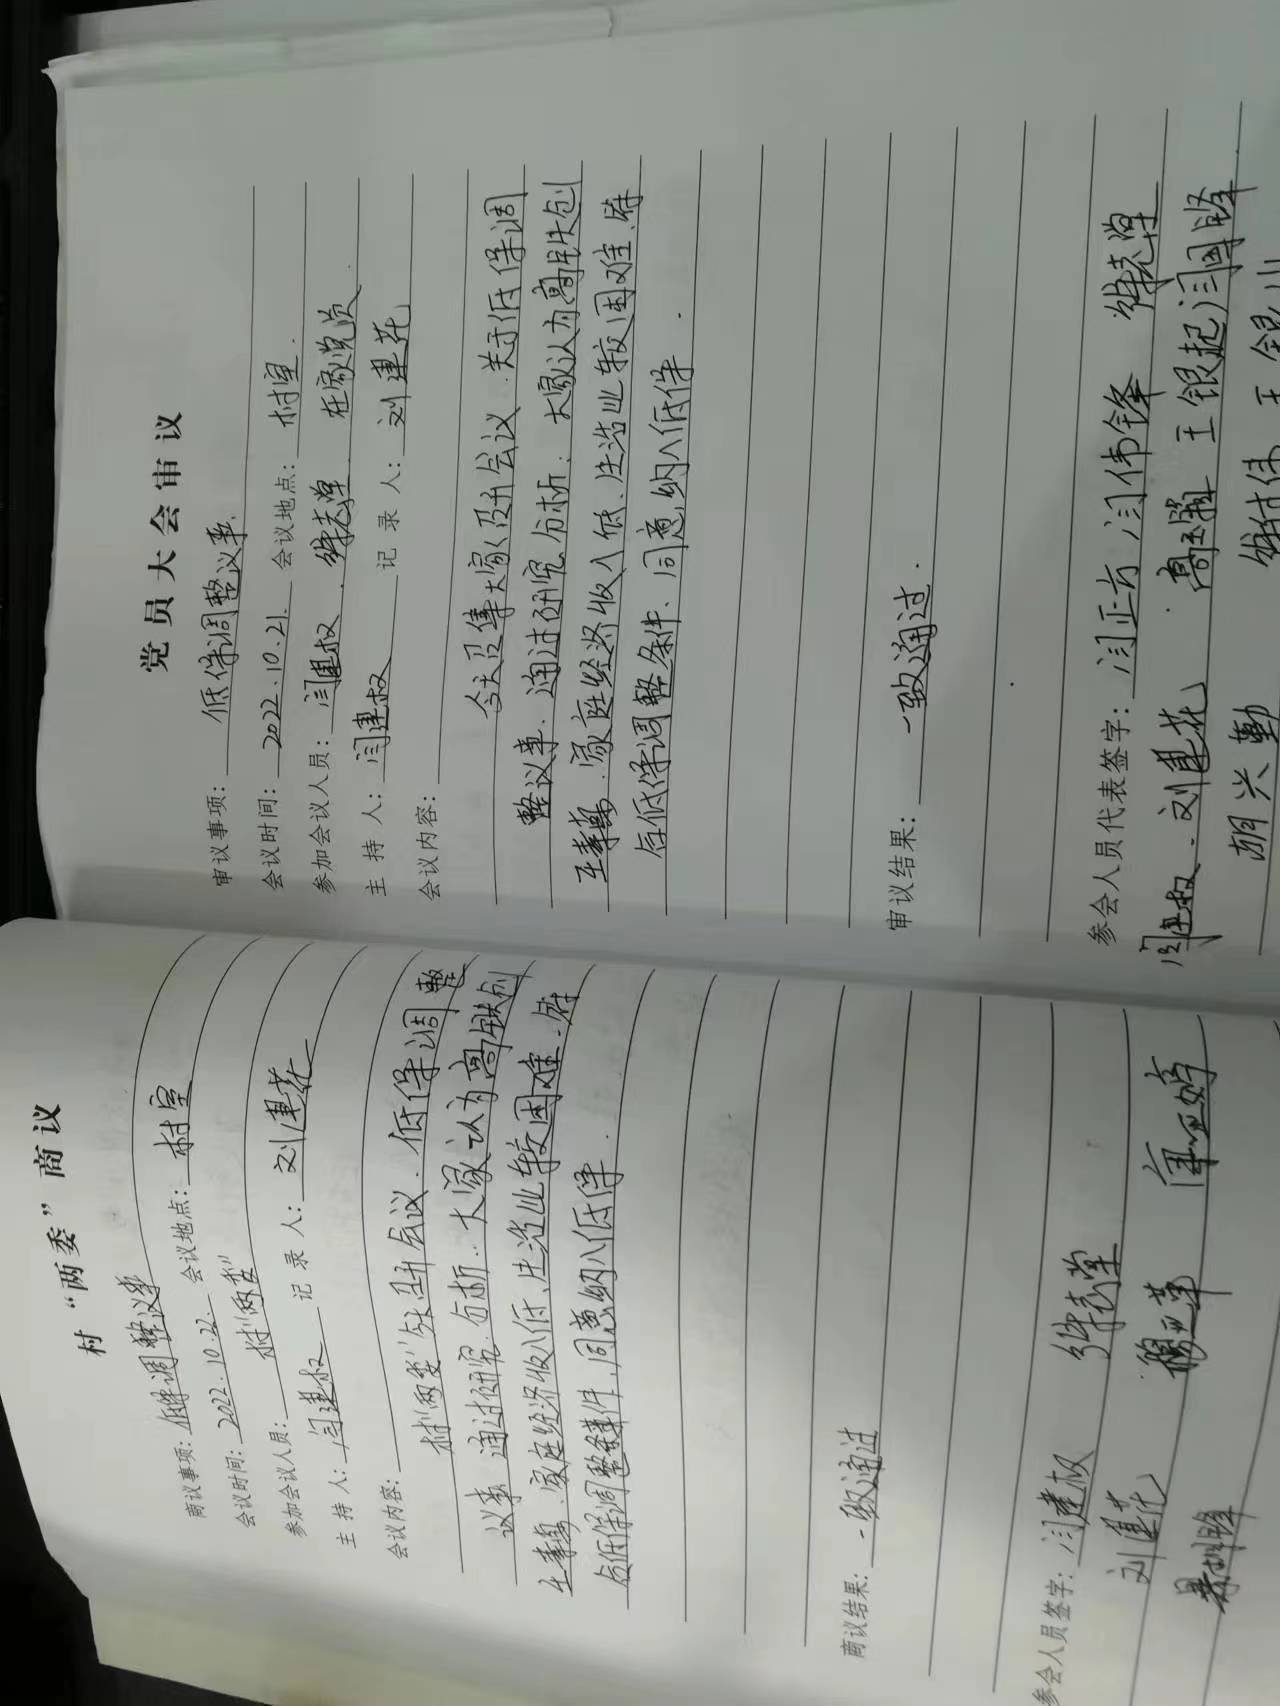 村“两委”商议
商议事项：低保调整议事
会议时间：2022.10.22 会议地点：村室
参加会议人员：村“两委”
主持人：闫建权 记录人：刘建花
会议内容：
村“两委”今召开会议．低保调整
议事 通过研究．分析．大家认为高铁创
王素苹．家庭经济收入低、生活比较困难．符
合低保调整条件．同意纳入低保．
商议结果：一致通过
参会人员签字：闫建权
刘建花
党员大会审议
审议事项：低保调整议事．
会议时间：2022.10.21. 会议地点：村室．
参加会议人员：闫建权． 在家党员．
主持人：闫建权 记录人：刘建花
会议内容：
今天召集大家召开会议．关于低保调
整议事．通过研究分析．大家认为高铁创
家庭经济收入低、生活比较困难．符
合低保调整条件、同意纳入低保．
审议结果：一致通过．
参会人员代表签字：闫正方 闫伟锋
闫建权．刘建花 王银起 闫国峰
胡兴勤 王银